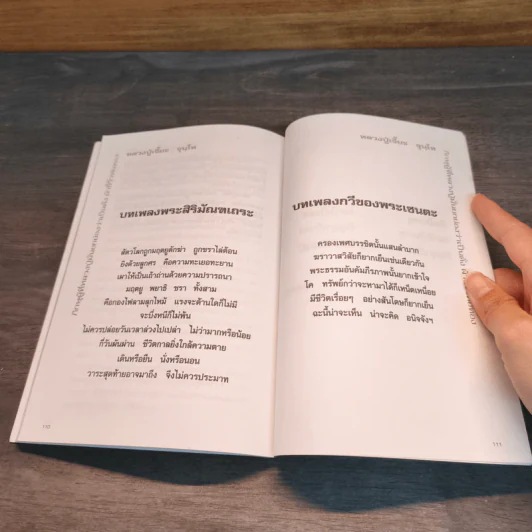 หลวงปู่เขี่ยม ขุนโท
บทเพลงพระสิริมัณฑเถระ
สัตว์โลกถูกมฤตยูดักฆ่า ถูกชราไล่ต้อน
ยิงด้วยลูกศร คือความทะเยอทะยาน
เผาให้เป็นเถ้าถ่านด้วยความปรารถนา
มฤตยู พยาธิ ชรา ทั้งสาม
คือกองไฟลามลุกไหม้ แรงจะต้านใดก็ไม่มี
จะบึ่งหนีก็ไม่พ้น
ไม่ควรปล่อยวันเวลาล่วงไปเปล่า ไม่ว่ามากหรือน้อย
กี่วันผ่าน ชีวิตกาลยิ่งใกล้ความตาย
เดินหรือยืน นั่งหรือนอน
วาระสุดท้ายอาจมาถึง จึงไม่ควรประมาท
110
บทเพลงกวีของพระเชนตะ
ครองเพศบรรชิตนั้นแสนลำบาก
ฆราวาสวิสัยก็ยากเย็นเช่นเดียวกัน
พระธรรมอันคัมภีรภาพนั้นยากเข้าใจ
โภคทรัพย์กว่าจะหามาได้ก็เหน็ดเหนื่อย
มีชีวิตเรื่อยๆ อย่างสันโดษก็ยากเย็น
ฉะนี้น่าจะเห็น น่าจะคิด อนิจจังฯ
111